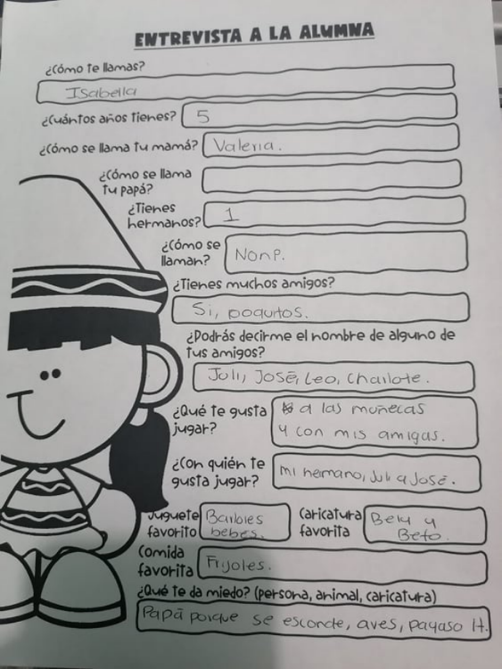 ENTREVISTA A LA ALUMNA
¿Cómo te llamas?
Isabella
¿Cuántos años tienes? 5
¿Cómo se llama tu mamá? Valeria.
¿Cómo se llama
tu papá?
¿Tienes
hermanos? 1
¿Cómo se
llaman? Nonp.
¿Tienes muchos amigos?
Si, poquitos.
¿Podrás decirme el nombre de alguno de
tus amigos?
Juli, José, Leo, Charlote.
¿Qué te gusta
jugar?
a las muñecas
y con mis amigas.
¿Con quién te
gusta jugar?
mi hermano, Juli a José.
Juguete
favorito
Barbies
bebes.
Caricatura
favorita
Bely y
Beto.
Comida
favorita Frijoles.
¿Qué te da miedo? (persona, animal, caricatura)
Papá porque se esconde, aves, payaso It.